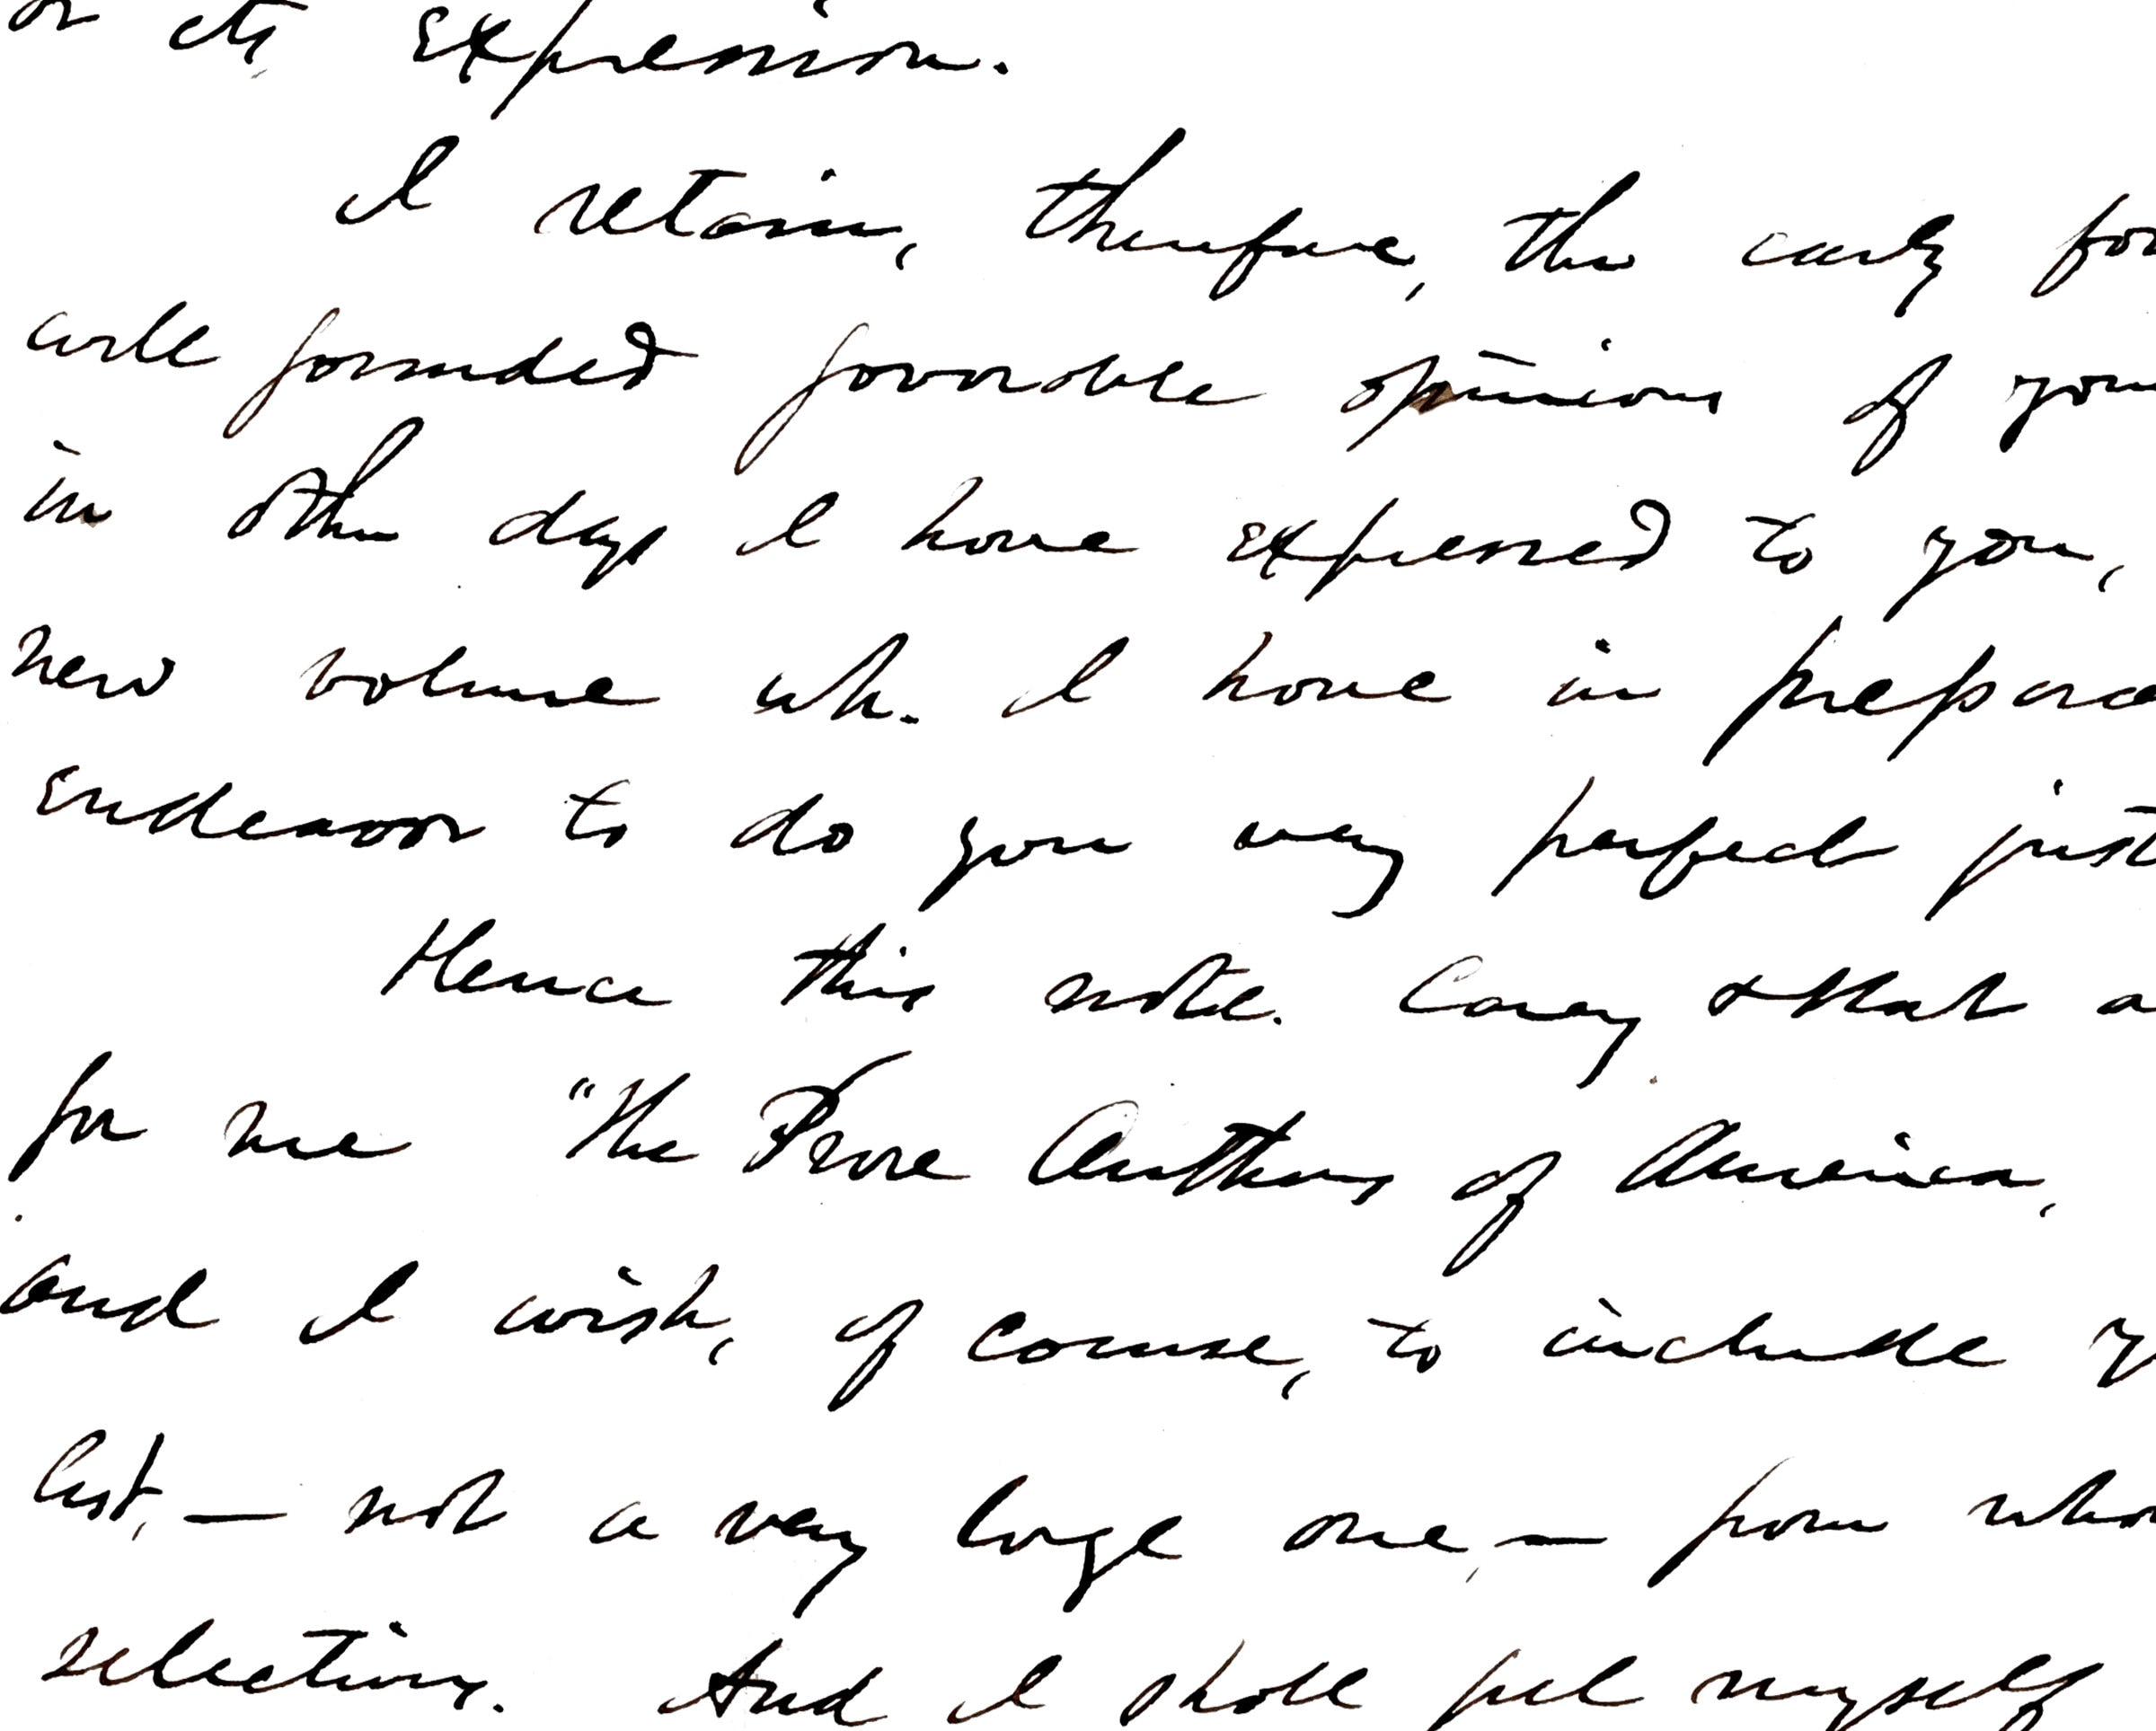 or its expression.
I retain, therefore, the early for
well founded favorable opinions of your
in other days I have expressed to you,
new volume wh. I have in prepara
endeavor to do you very perfect just
Hence this note. Carey & Hart a
for me "The Prose Authors of America,
and I wish, of course, to include y
list, — not a very large one, — from who
selections. And I shall feel myself